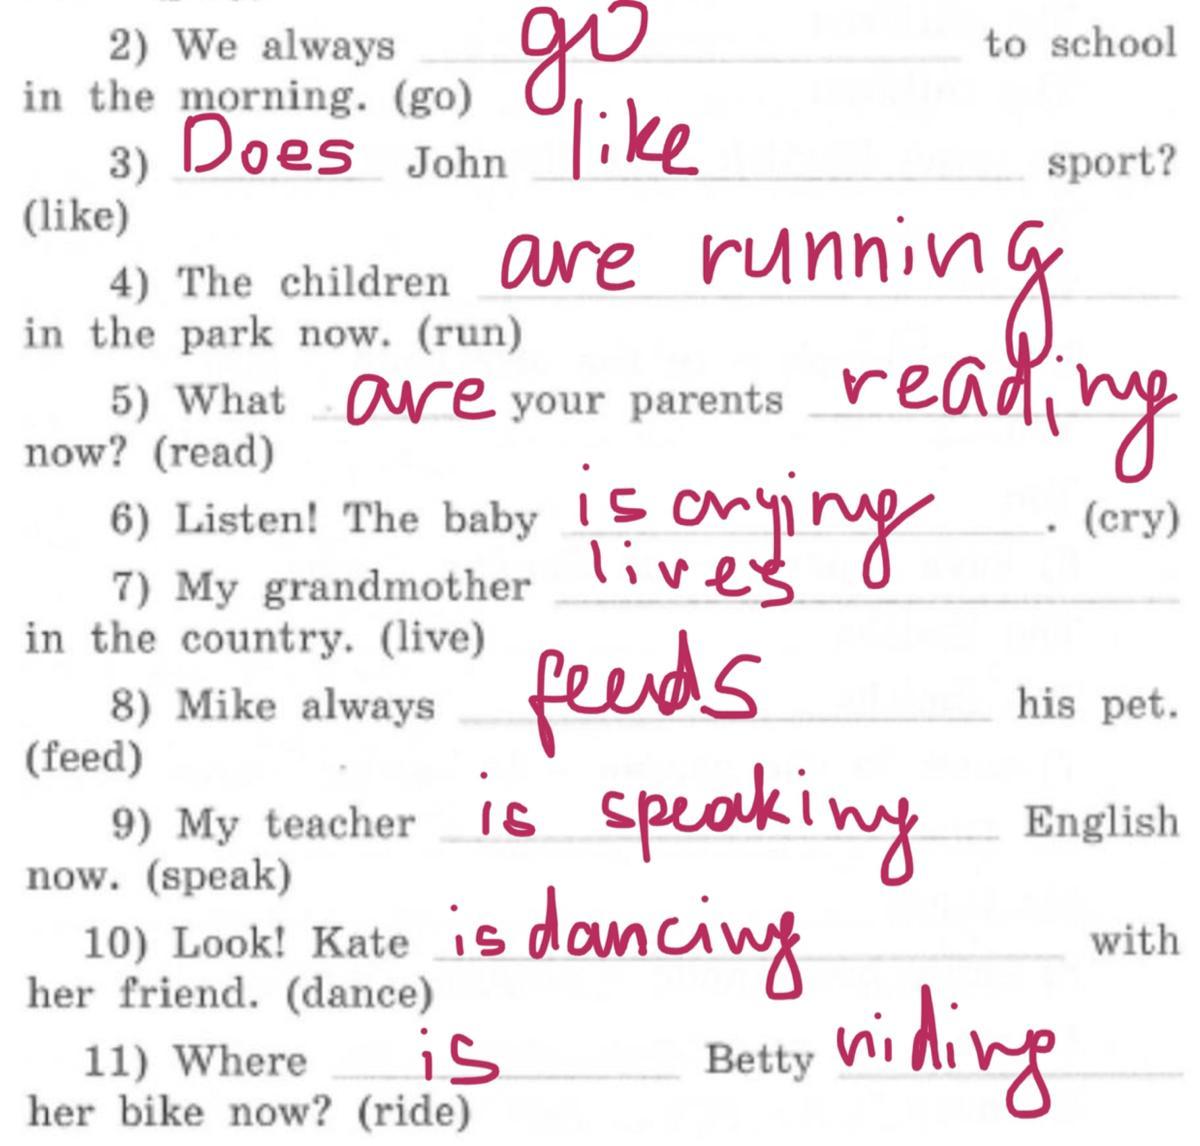 2) We always go to school
in the morning. (go)
3) Does John like sport?
(like)
4) The children are running
in the park now. (run)
5) What are your parents reading
now? (read)
6) Listen! The baby is crying. (cry)
7) My grandmother lives
in the country. (live)
8) Mike always feeds his pet.
(feed)
9) My teacher is speaking English
now. (speak)
10) Look! Kate is dancing with
her friend. (dance)
11) Where is Betty riding
her bike now? (ride)